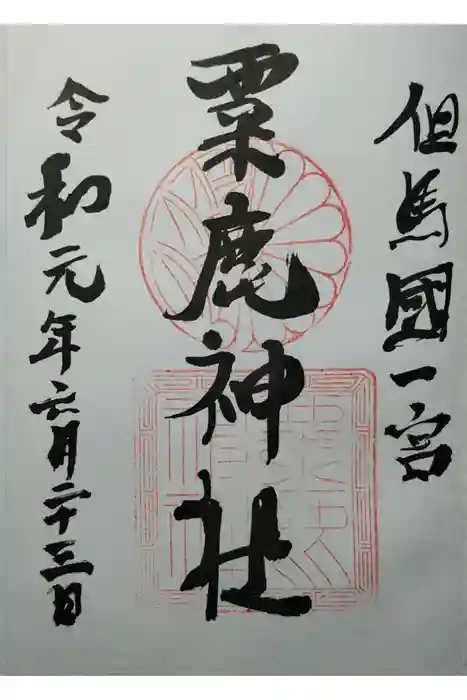 但馬國一宮
粟鹿神社
令和元年六月二十三日